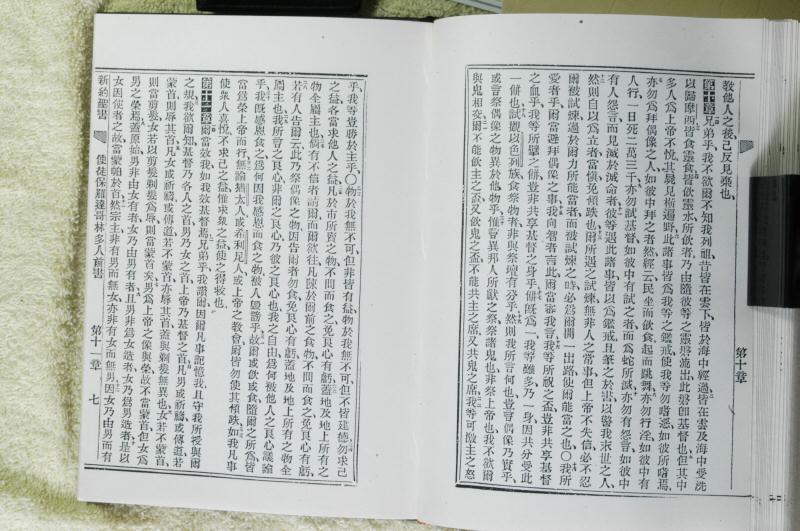 教他人之後己反見棄也
第十章兄弟乎我不欲爾不知我列祖昔皆在雲下皆於海中經過皆在雲及海中受洗
以歸摩西皆食靈食皆飲靈水所飲者乃由隨彼等之靈磐流出此磐卽基督也但其中
多人爲上帝不悅其屍見橫徧野此諸事皆爲我等之鑑戒使我等勿嗜惡如彼所嗜焉
亦勿爲拜偶像之人如彼中拜之者然經云民坐而飲食起而跳舞亦勿行淫如彼中有
人行一日死二萬三千亦勿試基督如彼中有試之者而爲蛇所滅亦勿有怨言如彼中
有人怨言而見滅於滅命者彼等遇此諸事皆以爲鑑戒且筆之於書以警我末世之人
然則自以爲立者當愼免傾跌也爾所遇之試煉無非人之常事但上帝不失信必不忍
爾被試煉過於爾力所能當者而被試煉之時必爲爾開一出路使爾能當之也〇我所
愛者乎爾當避拜偶像之事我向智者言此爾當審我言我等所祝之盃豈非共享基督
之血乎我等所擘之餅豈非共享基督之身乎餅旣爲一我等雖多乃一身因共分受此
一餅也試觀以色列族食祭物者非與祭壇有分乎然則我所言何也豈言偶像乃實乎
或言祭偶像之物異於他物乎惟言異邦人所獻之祭祭諸鬼也非祭上帝也我不欲爾
與鬼相交爾不能飲主之盃又飲鬼之盃不能共主之席又共鬼之席我等可激主之怒
第十章
乎我等豈勝於主乎〇物於我無不可但非皆有益物於我無不可但不皆建德勿求己
之益各當求他人之益凡於市所賣之物不問而食之免良心有虧蓋地及地上所有之
物全屬主也倘有不信者請爾而爾欲往凡陳於爾前之食物不問而食之免良心有虧
若有人告爾云此乃祭偶像之物因告爾者勿食免良心有虧蓋地及地上所有之物全
屬主也我所言之良心非爾之良心乃彼之良心也我之自由爲何被他人之良心議論
乎我旣感恩食之爲何因我感恩而食之物被人譭謗乎故爾或飲或食隨爾之所爲皆
當爲榮上帝而行無論猶太人或希利尼人或上帝之教會爾皆勿使其傾跌如我凡事
使衆人喜悅不求己之益惟求衆之益使之得救也
第十一章爾當效我如我效基督焉兄弟乎我讚爾因爾凡事記憶我且守我所授與爾
之規我欲爾知基督乃各人之首男乃女之首上帝乃基督之首凡男或祈禱或傳道若
蒙首則辱其首凡女或祈禱或傳道若不蒙首亦辱其首蓋與剃髮無異也女若不蒙首
則當剪髮女若以剪髮剃髮爲辱則當蒙首矣男爲上帝之像與榮故不當蒙首但女爲
男之榮焉蓋原始男非由女有者女乃由男有者且男非爲女造者女乃爲男造者是以
女因使者之故當蒙帕於首然宗主非有男而無女亦非有女而無男因女乃由男而有
新約聖書 使徒保羅達哥林多人前書 第十一章 七